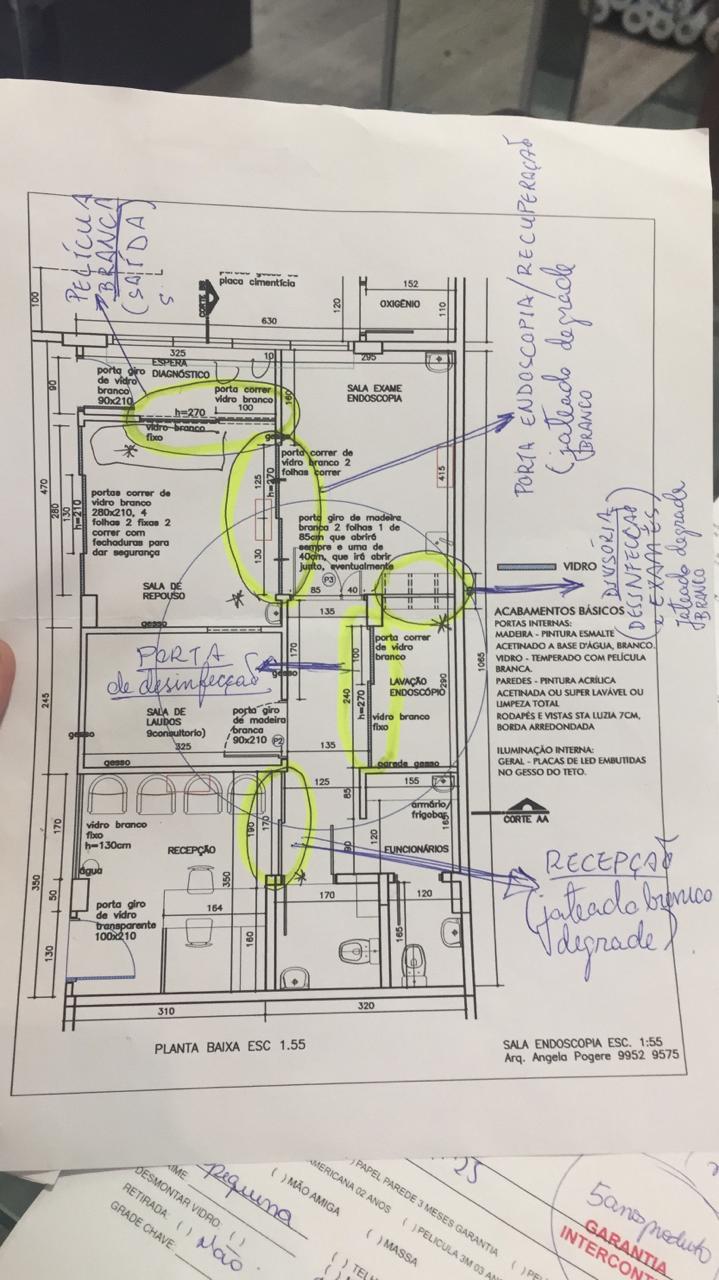 PELÍCULA
BRANCA
(SAÍDA)
S
PORTA ENDOSCOPIA/RECUPERAÇÃO
(jateado degrade
BRANCO
placa cimentícia
CORTE BB
630
120
152
OXIGÊNIO
110
100
325
10
295
ESPERA
DIAGNÓSTICO
porta giro
de vidro
branco
90x210
90
porta correr
vidro branco
100
h=270
vidro branco
fixo
160
SALA EXAME
ENDOSCOPIA
gesso
porta correr de
vidro branco 2
folhas correr
125
h=270
130
415
470
280
130
h=210
portas correr de
vidro branco
280x210, 4
folhas 2 fixas 2
correr com
fechaduras para
dar segurança
porta giro de madeira
branca 2 folhas 1 de
85cm que abrirá
sempre e uma de
40cm, que irá abrir
junto, eventualmente
P3
85
40
SALA DE
REPOUSO
gesso
135
VIDRO
DIVISÓRIA
(DESINFECÇÃO
E EXAMES)
jateado degrade
BRANCO
ACABAMENTOS BÁSICOS
PORTAS INTERNAS:
MADEIRA - PINTURA ESMALTE
ACETINADO A BASE D'ÁGUA, BRANCO.
VIDRO - TEMPERADO COM PELÍCULA
BRANCA.
PAREDES - PINTURA ACRÍLICA
ACETINADA OU SUPER LAVÁVEL OU
LIMPEZA TOTAL
RODAPÉS E VISTAS STA LUZIA 7CM,
BORDA ARREDONDADA
ILUMINAÇÃO INTERNA:
GERAL - PLACAS DE LED EMBUTIDAS
NO GESSO DO TETO.
PORTA
de desinfecção
170
100
240
h=270
porta correr
de vidro
branco
290
LAVAÇÃO
ENDOSCÓPIO
vidro branco
fixo
1065
245
SALA DE
LAUDOS
9consultorio)
325
gesso
gesso
porta giro
de madeira
branca
90x210
P2
135
parede gesso
125
155
85
armário/
frigobar
165
120
90
FUNCIONÁRIOS
CORTE AA
170
350
50
130
vidro branco
fixo
h=130cm
RECEPÇÃO
190
170
350
água
porta giro
de vidro
transparente
100x210
164
160
170
120
165
RECEPÇÃO
(jateado branco
degrade)
310
320
PLANTA BAIXA ESC 1.55
SALA ENDOSCOPIA ESC. 1:55
Arq. Angela Pogere 9952 9575
pequena
DESMONTAR VIDRO: ( )
RETIRADA: ( ) Não
GRADE CHAVE:
( ) MÃO AMIGA
AMERICANA 02 ANOS
( ) PAPEL PAREDE 3 MESES GARANTIA
( ) PELICULA 3M 03 AN
( ) MASSA
5 anos produto
GARANTIA
INTERCONT